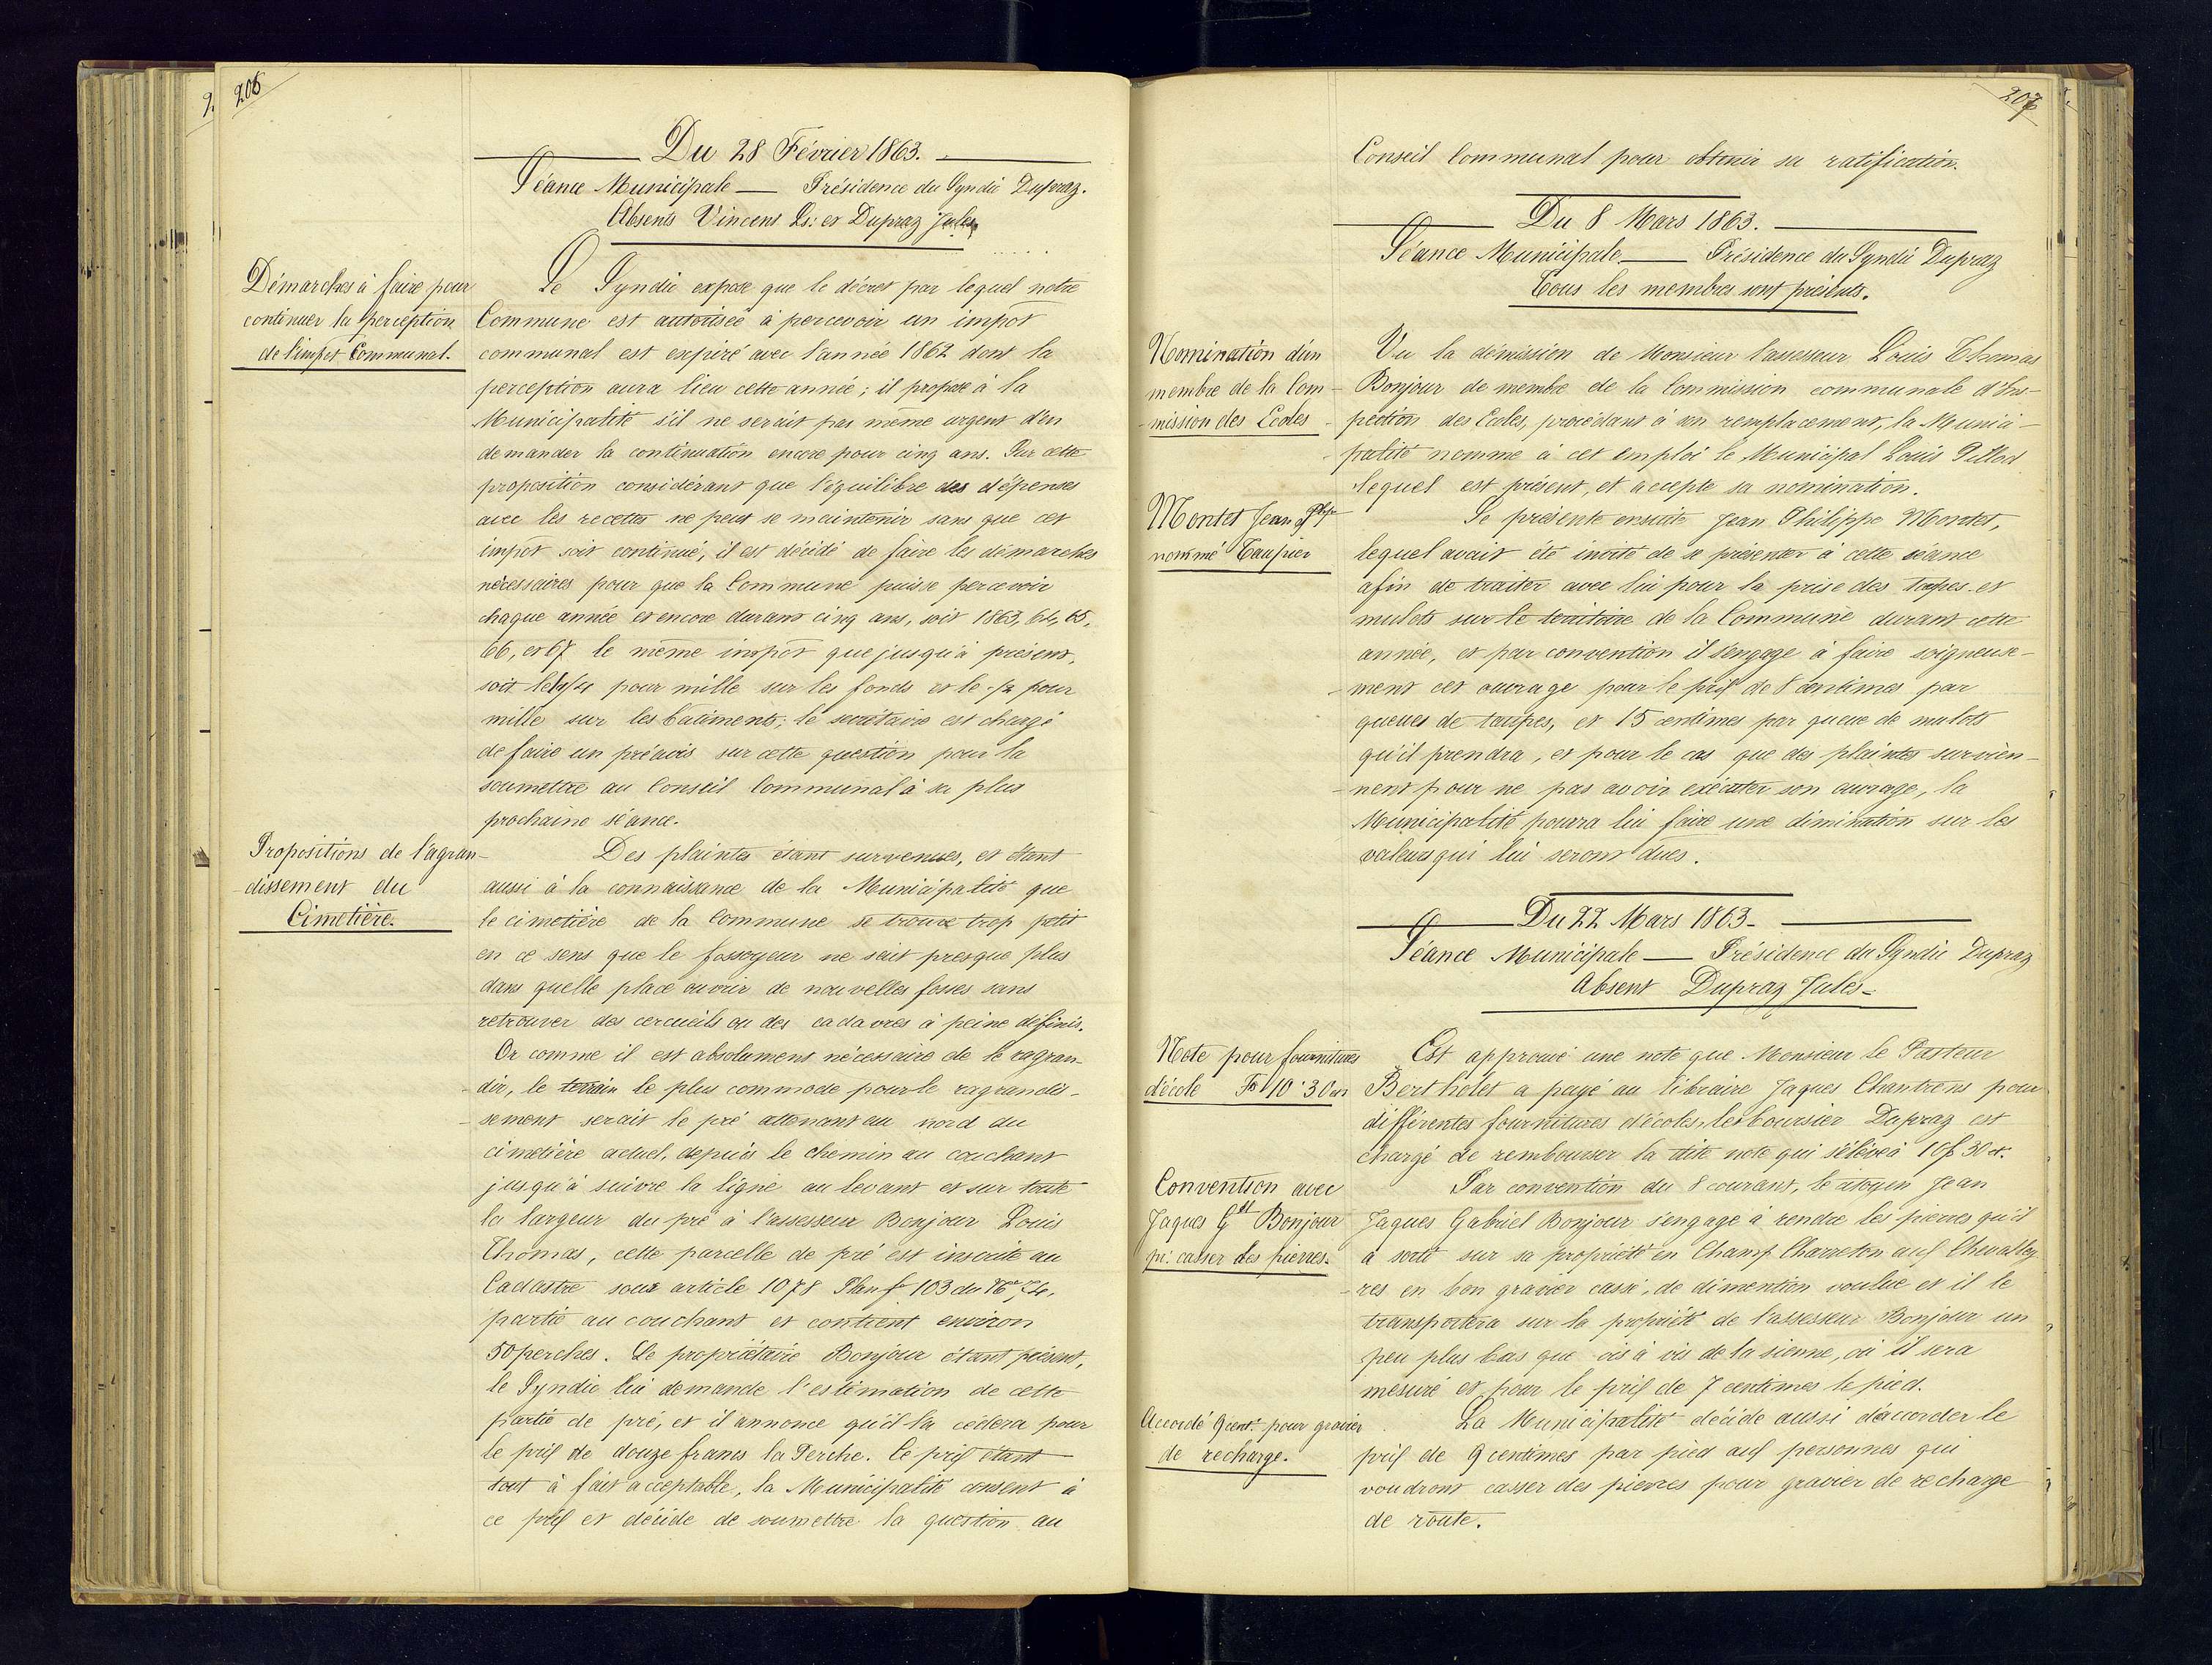 206
Du 28 Février 1863.
Séance Municipale — Présidence du Syndic Dupraz.
Absents Vincent Ls: et Dupraz Jules
Démarches à faire pour
continuer la perception
de l'impôt Communal.
Le Syndic expose que le décret par lequel notre
Commune est autorisée à percevoir un impôt
communal est expiré avec l'année 1862 dont la
perception aura lieu cette année; il propose à la
Municipalité s'il ne serait pas même urgent d'en
demander la continuation encore pour cinq ans. Sur cette
proposition considérant que l'équilibre des dépenses
avec les recettes ne peut se maintenir sans que cet
impôt soit continué, il est décidé de faire les démarches
nécessaires pour que la Commune puisse percevoir
chaque année et encore durant cinq ans, soit 1863, 64, 65,
66, et 67 le même impôt que jusqu'à présent,
soit le pour mille sur les fonds et le 1/2 pour
mille sur les bâtiments; le secrétaire est chargé
de faire un préavis sur cette question pour la
soumettre au Conseil Communal à sa plus
prochaine séance.
Propositions de l'agran-
-dissement du
Cimetière.
Des plaintes étant survenues, et étant
aussi à la connaissance de la Municipalité que
le cimetière de la Commune se trouve trop petit
en ce sens que le fossoyeur ne sait presque plus
dans quelle place ouvrir de nouvelles fosses sans
retrouver des cercueils ou des cadavres à peine définis.
Or comme il est absolument nécessaire de le ragran-
-dir, le terrain le plus commode pour le ragrandis-
-sement serait le pré attenant au nord du
cimetière actuel, depuis le chemin au couchant
jusqu'à suivre la ligne au levant et sur toute
la largeur du pré à l'assesseur Bonjour Louis
Thomas, cette parcelle de pré est inscrite au
Cadastre sous article 1078 Plan fo 103 du No 74,
partie au couchant et contient environ
50 perches. Le propriétaire Bonjour étant présent,
le Syndic lui demande l'estimation de cette
partie de pré, et il annonce qu'il la cèdera pour
le prix de douze francs la Perche. Ce prix étant
tout à fait acceptable, la Municipalité consent à
ce prix et décide de soumettre la question au
207
Conseil Communal pour obtenir sa ratification.
Du 8 Mars 1863.
Séance Municipale — Présidence du Syndic Dupraz
Tous les membres sont présents.
Nomination d'un
membre de la Com-
-mission des Ecoles
Vu la démission de Monsieur l'assesseur Louis Thomas
Bonjour de membre de la Commission communale d'Ins-
pection des Ecoles, procédant à son remplacement, la Munici-
-palité nomme à cet emploi le Municipal Louis Pittod
lequel est présent, et accepte sa nomination.
Montet Jean Php
nommé Taupier
Se présente ensuite Jean Philippe Montet,
lequel avait été invité de se présenter à cette séance
afin de traiter avec lui pour la prise des taupes et
mulots sur le territoire de la Commune durant cette
année, et par convention il s'engage à faire soigneuse-
-ment cet ouvrage pour le prix de 8 centimes par
queues de taupes, et 15 centimes par queue de mulots
qu'il prendra, et pour le cas que des plaintes survien-
-nent pour ne pas avoir exécuter son ouvrage, la
Municipalité poura lui faire une diminution sur les
valeurs qui lui seront dues.
Du 22 Mars 1863.
Séance Municipale — Présidence du Syndic Dupraz
Absent Dupraz Jules.
Note pour fournitures
d'école Fs 10"30 cs
Est approuvé une note que Monsieur le Pasteur
Bertholet a payé au libraire Jaques Chantrens pour
différentes fournitures d'écoles, le boursier Dupraz est
chargé de rembourser la dite note qui s'élève à 10f 30 ct.
Convention avec
Jaques Gel Bonjour
pr. casser des pierres.
Par convention du 8 courant, le citoyen Jean
Jaques Gabriel Bonjour s'engage à rendre les pierres qu'il
a sorti sur sa propriété en Champ Charreton aux Chevalley-
-res en bon gravier cassé, de dimention voulue et il le
transportera sur la propriété de l'assesseur Bonjour un
peu plus bas que vis à vis de la sienne, où il sera
mesuré et pour le prix de 7 centimes le pied.
Accordé 9 cent. pour gravier
de recharge.
La Municipalité décide aussi d'accorder le
prix de 9 centimes par pied aux personnes qui
voudront casser des pierres pour gravier de recharge
de route.